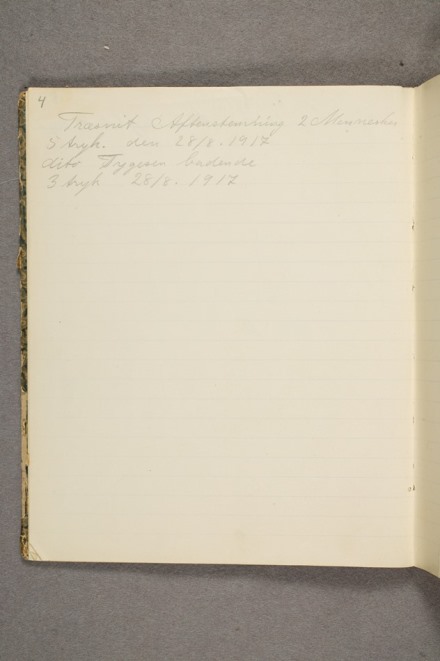 4
Træsnit Aftenstemning 2 Mennesker
5 tryk. den 28/8. 1917
dito badende
3 tryk 28/8. 1917